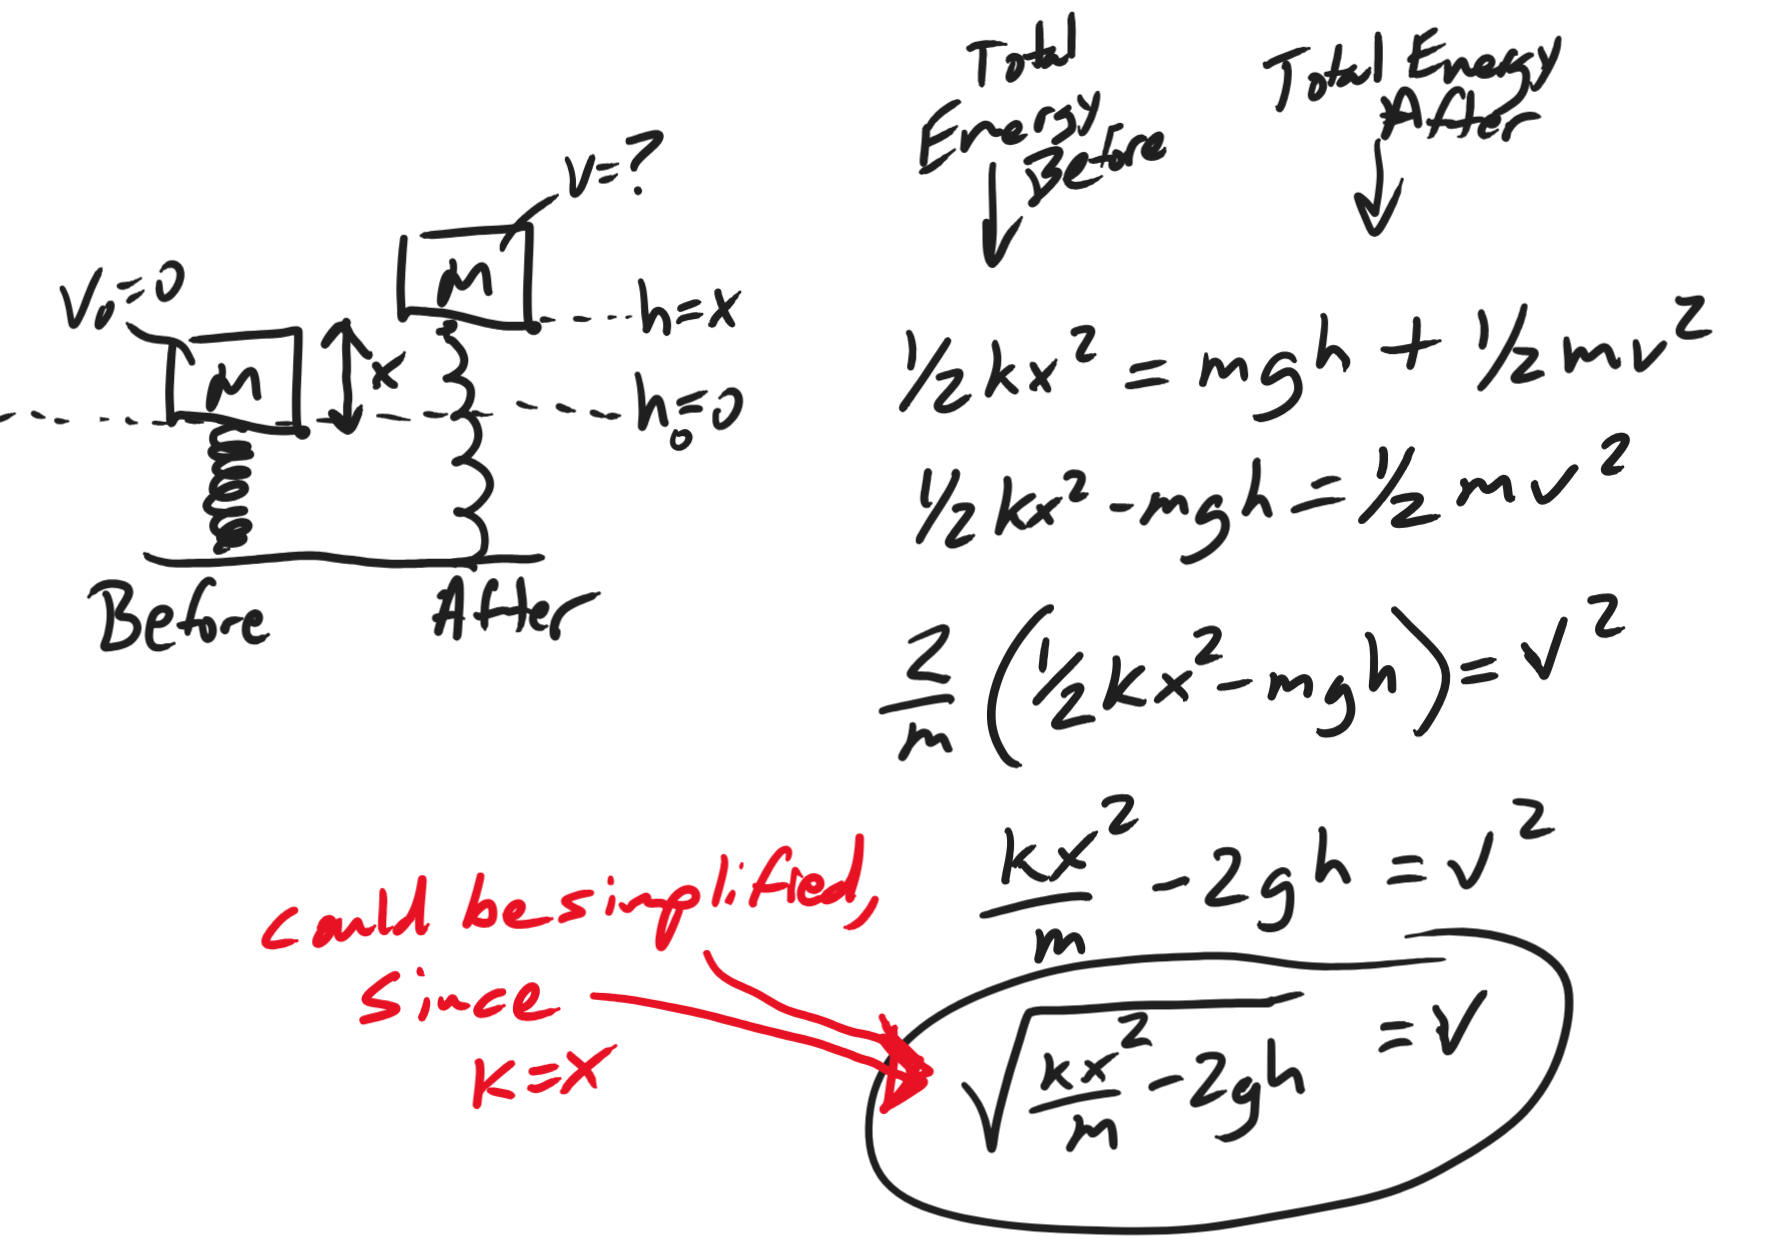 Total
Energy
Before
Total Energy
After
v=?
v₀=0
m
m
x
h=x
h₀=0
Before
After
½kx² = mgh + ½mv²
½kx² - mgh = ½mv²
2/m (½kx² - mgh) = v²
kx²/m - 2gh = v²
√(kx²/m - 2gh) = v
could be simplified,
since
k=x